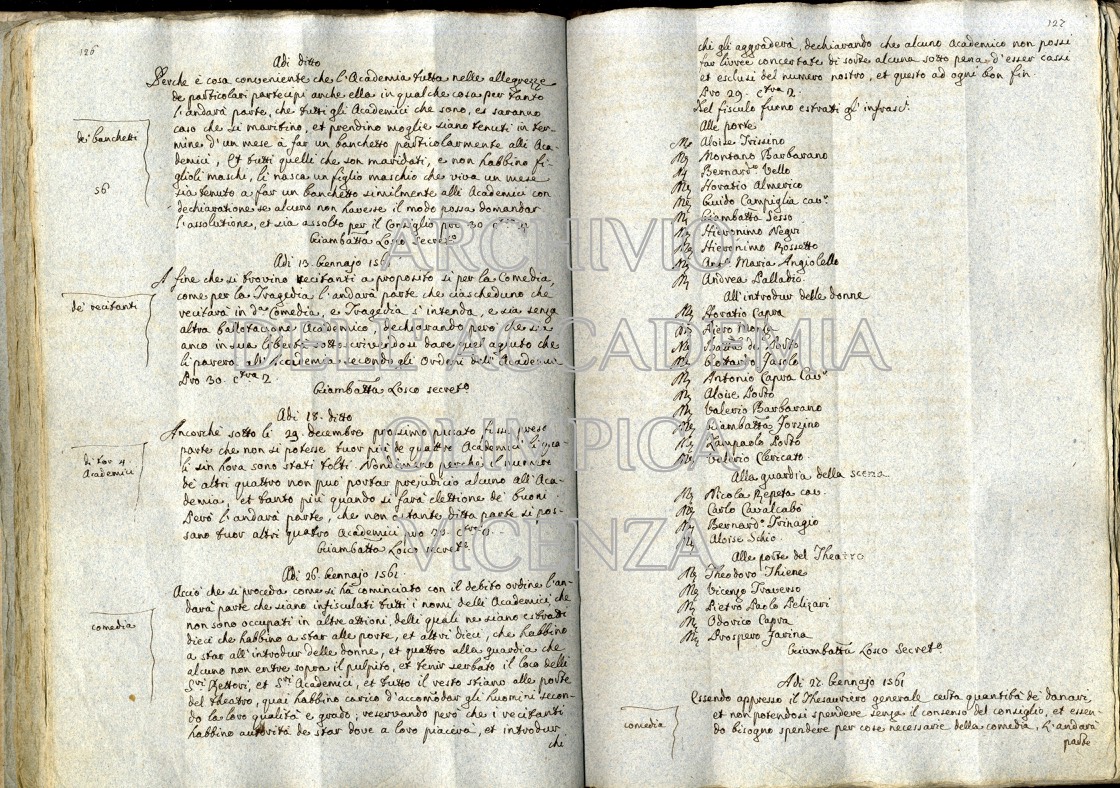 126
Adi ditto
Perche è cosa conveniente che l'Academia tutta nelle allegrezze
de particolari partecipi anche ella in qualche cosa per tanto
l'andarà parte, che tutti gli Academici che sono, et saranno
caso che si maritino, et prendino moglie siano tenuti in ter-
mine d'un mese à far un banchetto particolarmente alli Aca-
demici, Et tutti quelli che son maridati, e non habbino fi-
glioli maschi, li nasca un figlio maschio che viva un mese
sia tenuto a far un banchetto similmente alli Academici con
dechiaratione se alcuno non havesse il modo possa domandar
l'assolutione, et sia assolto per il Consiglio pro 30.
Giambatta Losco secreto
dei banchetti
56
Adi 13. Gennajo 156
A fine che si trovino recitanti a proposito si per la Comedia,
come per la Tragedia l'andarà parte che ciascheduno che
recitarà in da Comedia, e Tragedia s'intenda, e sia senza
altra ballotatione Academico, dechiarando però che sia
anco in sua libertà sottoscrivendosi dare quel agiuto che
li pareva all'Academia secondo gli Ordeni dell'Academia
Pro 30. ctra 2
Giambatta Losco secreto
de' recitanti
Adi 18. ditto
Ancorchè sotto li 29. decembre prossimo passato fusse preso
parte che non si potesse tuor più de quattro Academici li qua-
li sin hora sono stati tolti. Nondimeno perche il numero
de altri quattro non può portar prejudicio alcuno all'Aca-
demia, et tanto più quando si farà elettione de buoni.
Però l'andarà parte, che non ostante ditta parte si pos-
sano tuor altri quattro Academici pro 29. ctra 0.
Giambatta Losco secreto
di tor 4
Academici
Adi 26. Gennajo 1561.
Acciò che si proceda come si hà cominciato con il debito ordine l'an-
darà parte che siano infisculati tutti i nomi delli Academici che
non sono occupati in altre attioni, delli quali ne siano estratti
dieci che habbino a star alle porte, et altri dieci, che habbino
a star all'introdur delle donne, et quattro alla guardia che
alcuno non entre sopra il pulpito, et tenir serbato il loco delli
Sri Rettori, et Sri Academici, et tutto il resto stiano alle porte
del theatro, quai habbino carico d'accomodar gli huomini secon-
do la loro qualità e grado; reservando però che i recitanti
habbino autorità de star dove a loro piacerà, et introdur
chi
comedia
127
chi gli aggraderà, dechiarando che alcuno Academico non possi
far livree concertate di sorte alcuna sotto pena d'esser cassi
et esclusi del numero nostro, et questo ad ogni bon fin.
Pro 29. ctra 2.
Nel fisculo furno estratti gl'infrasci.
Alle porte
Mr Aloise Trissino
Mr Montano Barbarano
Mr Bernardo Vello
Mr Horatio Almerico
Mr Guido Campiglia cavr
Mr Giambatta Sesso
Mr Hieronimo Negri
Mr Hieronimo Rossetto
Mr Anto Maria Angiolello
Mr Andrea Palladio.
All'introdur delle donne
Mr Horatio Capra
Mr Piero
Mr Batta di Porto
Mr Gottardo Fasolo
Mr Antonio Capra Cavr
Mr Aloise Porto
Mr Valerio Barbarano
Mr Giambatta Forzino
Mr Zampaolo Porto
Mr Valerio Clericato.
Alla guardia della scena
Mr Nicola Repeta cav.
Mr Carlo Cavalcabò
Mr Bernardo Trinagio
Mr Aloise Schio.
Alle porte del Theatro
Mr Theodoro Thiene
Mr Vicenzo Traverso
Mr Pietro Paolo Pelizari
Mr Odorico Capra
Mr Prospero Farina
Giambatta Losco Secreto
Adi 27. Gennajo 1561
Essendo appresso il Thesauriero generale certa quantità de danari,
et non potendosi spendere senza il consenso del consiglio, et essen-
do bisogno spendere per cose necessarie della comedia, L'andarà
parte
comedia
ARCHIVIO
DELL'ACCADEMIA
OLIMPICA
VICENZA